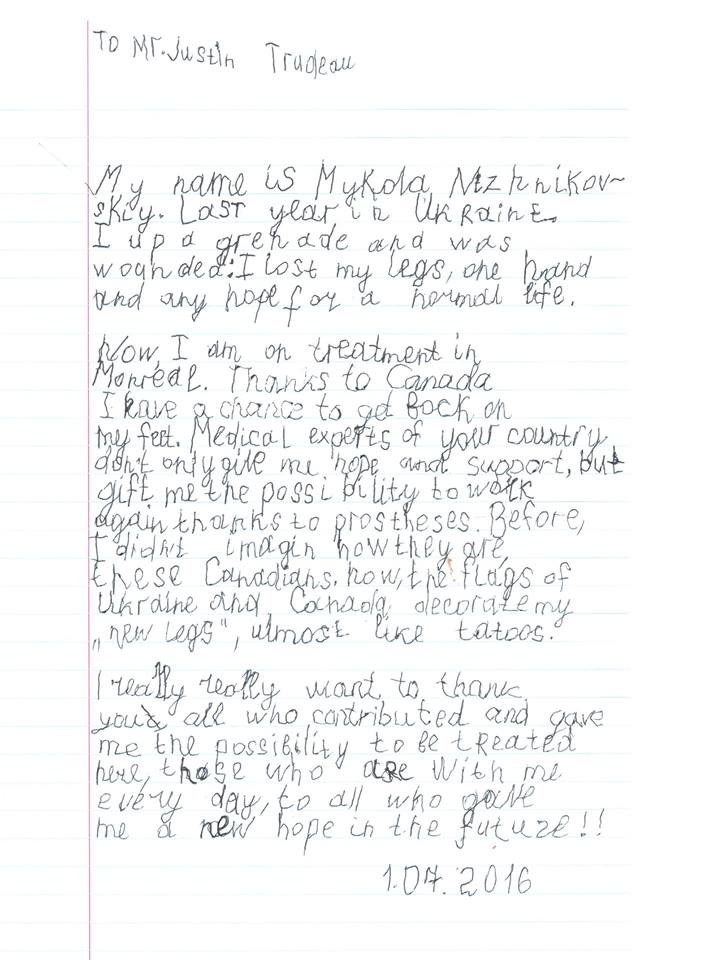 To Mr. Justin Trudeau
My name is Mykola Nizhnikov~
skiy. Last year in Ukraine
I up a grenade and was
woghded: I lost my legs, one hand
and any hope for a normal life.
Now, I am on treatment in
Monreal. Thanks to Canada
I have a chance to get back on
my feet. Medical experts of your country
don't only give me hope and support, but
gift me the possibility to walk
again thanks to prostheses. Before,
I didn't imagin how they are,
these Canadians. Now, the flags of
Ukraine and Canada decorate my
„new legs“, ulmost like tatoos.
I really really want to thank
you & all who contributed and gave
me the possibility to be treated
here, those who are with me
every day, to all who gave
me a new hope in the future!!
1.07.2016